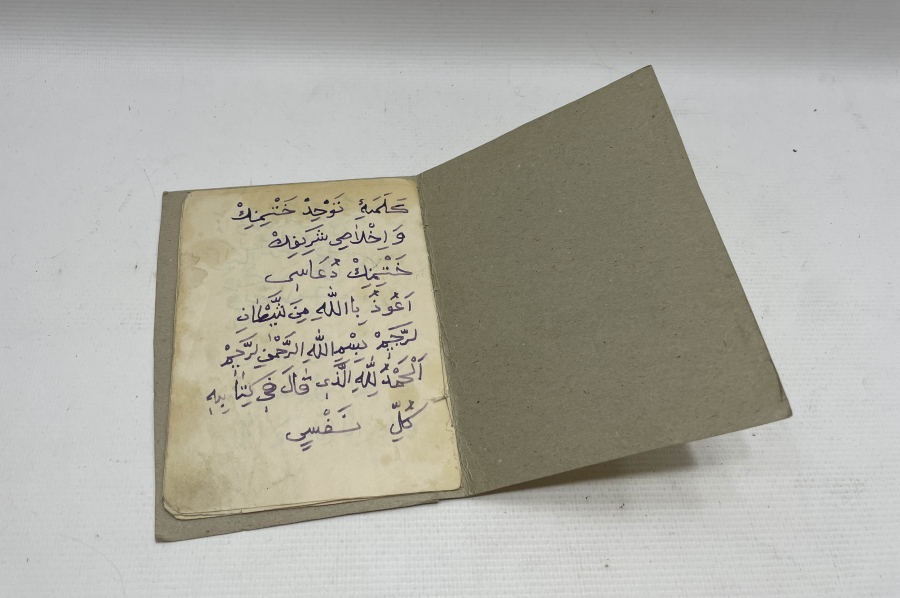 كَلَمَۀِ تَوْحِدْ خَتْمِنِكْ
وَ اِخْلَاصِ شَرِيفِكْ
خَتْمِنِكْ دُعَاسِى
اَعُوذُ بِا اللّٰهِ مِنَ شَّيْطَانِ
لرَّجِيمْ بِسْمِ اللّٰهِ الرَّحْمٰنِ لرَّحِيمْ
اَلْحَمْدُ لِلّٰهِ الَّذٖى قَالَ فٖى كِتَابِهِ
كُلِّ نَفْسِي